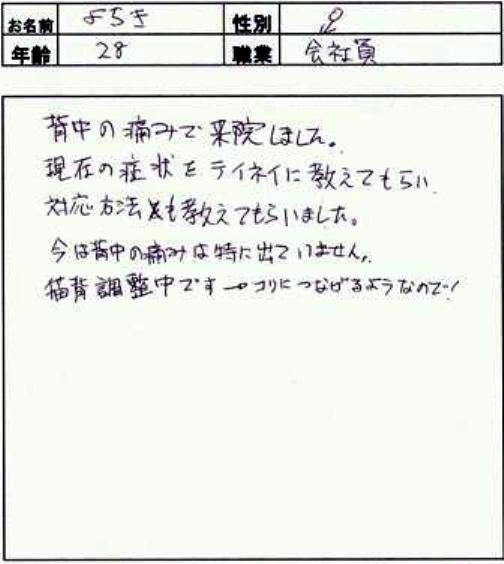 お名前 よしき 性別 ♀
年齢 28 職業 会社員
背中の痛みで来院しました。
現在の症状をテイネイに教えてもらい
対応方法も教えてもらいました。
今は背中の痛みは特に出ていません。
猫背調整中です→コリにつなげるようなので!